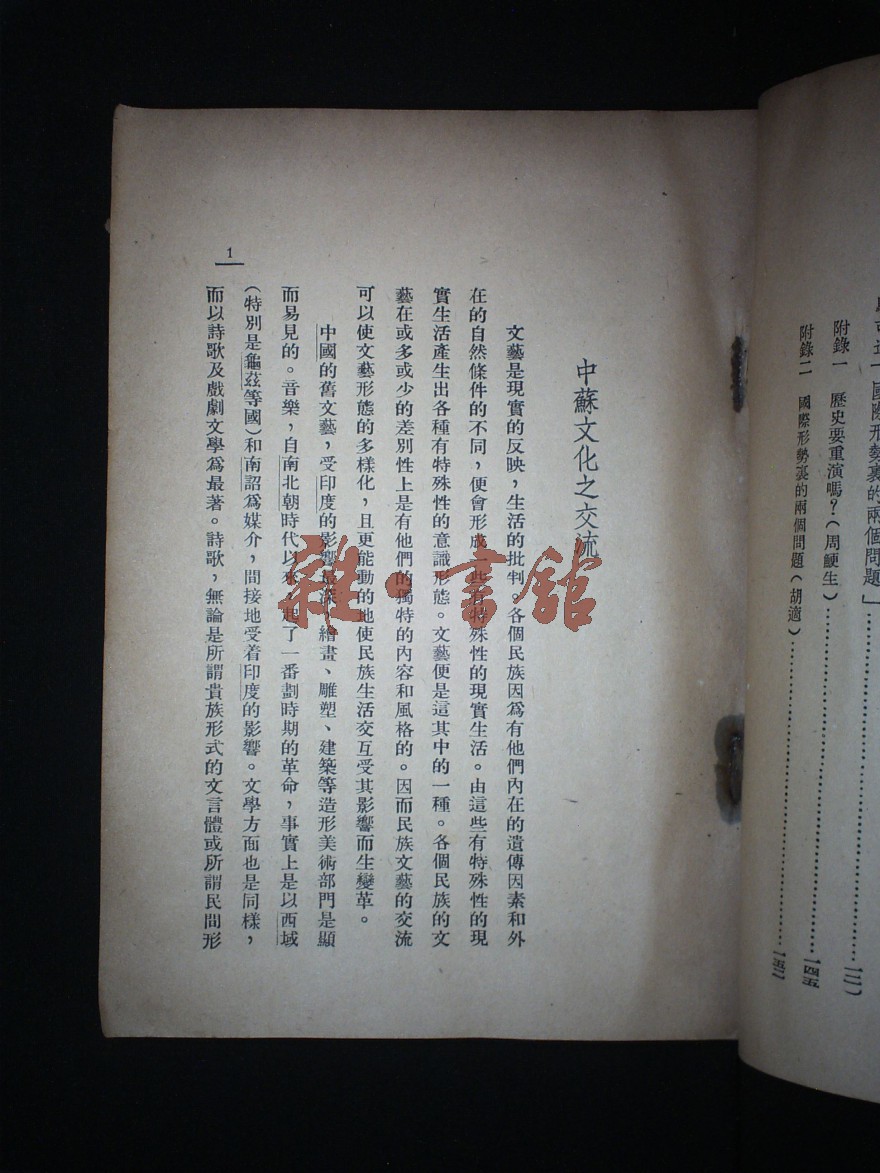 國際形勢裏的兩個問題」……………………一二一
附錄一　歷史要重演嗎？(周鯁生)……………………一四五
附錄二　國際形勢裏的兩個問題(胡適)……………………一五二
中蘇文化之交流
文藝是現實的反映，生活的批判。各個民族因爲有他們內在的遺傳因素和外
在的自然條件的不同，便會形成一些有特殊性的現實生活。由這些有特殊性的現
實生活產生出各種有特殊性的意識形態。文藝便是這其中的一種。各個民族的文
藝在或多或少的差別性上是有他們的獨特的內容和風格的。因而民族文藝的交流
可以使文藝形態的多樣化，且更能動的地使民族生活交互受其影響而生變革。
中國的舊文藝，受印度的影響最深。繪畫、雕塑、建築等造形美術部門是顯
而易見的。音樂，自南北朝時代以來，起了一番劃時期的革命，事實上是以西域
(特別是龜茲等國)和南詔爲媒介，間接地受着印度的影響。文學方面也是同樣，
而以詩歌及戲劇文學爲最著。詩歌，無論是所謂貴族形式的文言體或所謂民間形
1
雜·書館